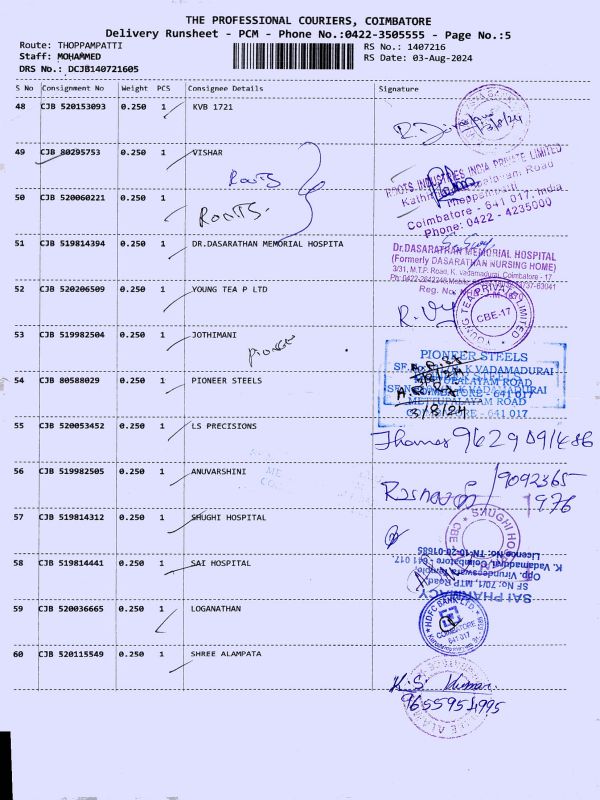 THE PROFESSIONAL COURIERS, COIMBATORE
Delivery Runsheet - PCM - Phone No.:0422-3505555 - Page No.:5
Route: THOPPAMPATTI
RS No.: 1407216
Staff: MOHAMMED
RS Date: 03-Aug-2024
DRS No.: DCJB140721605
S No Consignment No Weight PCS Consignee Details Signature
48 CJB 520153093 0.250 1 KVB 1721
3/8/24
49 CJB 80295753 0.250 1 VISHAR
ROOTS
ROOTS INDUSTRIES INDIA PRIVATE LIMITED
Road
Thoppampatti
Coimbatore - 641 017. India
Phone: 0422 - 4235000
50 CJB 520060221 0.250 1
ROOTS.
51 CJB 519814394 0.250 1 DR.DASARATHAN MEMORIAL HOSPITA
Dr.DASARATHAN MEMORIAL HOSPITAL
(Formerly DASARATHAN NURSING HOME)
3/31, M.T.P. Road, K. vadamadurai, Coimbatore - 17.
52 CJB 520206509 0.250 1 YOUNG TEA P LTD
YOUNG TEA PRIVATE LIMITED
CBE-17
53 CJB 519982504 0.250 1 JOTHIMANI
Pioneer
54 CJB 80588029 0.250 1 PIONEER STEELS
PIONEER STEELS
K.VADAMADURAI
METTUPALAYAM ROAD
COIMBATORE - 641 017
3/8/24
55 CJB 520053452 0.250 1 LS PRECISIONS
Thomas 9629091486
56 CJB 519982505 0.250 1 ANUVARSHINI
9092365
1976
57 CJB 519814312 0.250 1 SHUGHI HOSPITAL
SHUGHI HO
CBE
58 CJB 519814441 0.250 1 SAI HOSPITAL
SAI PHARMACY
SF No. 70/1, MTP Road,
Opp. Virundeeswara Temple,
K. Vadamadurai, Coimbatore - 641 017.
Licence No: TN-10-20-01685
59 CJB 520036665 0.250 1 LOGANATHAN
HDFC BANK LTD.
COIMBATORE
641 017
60 CJB 520115549 0.250 1 SHREE ALAMPATA
K.S. Kumar
9655951995